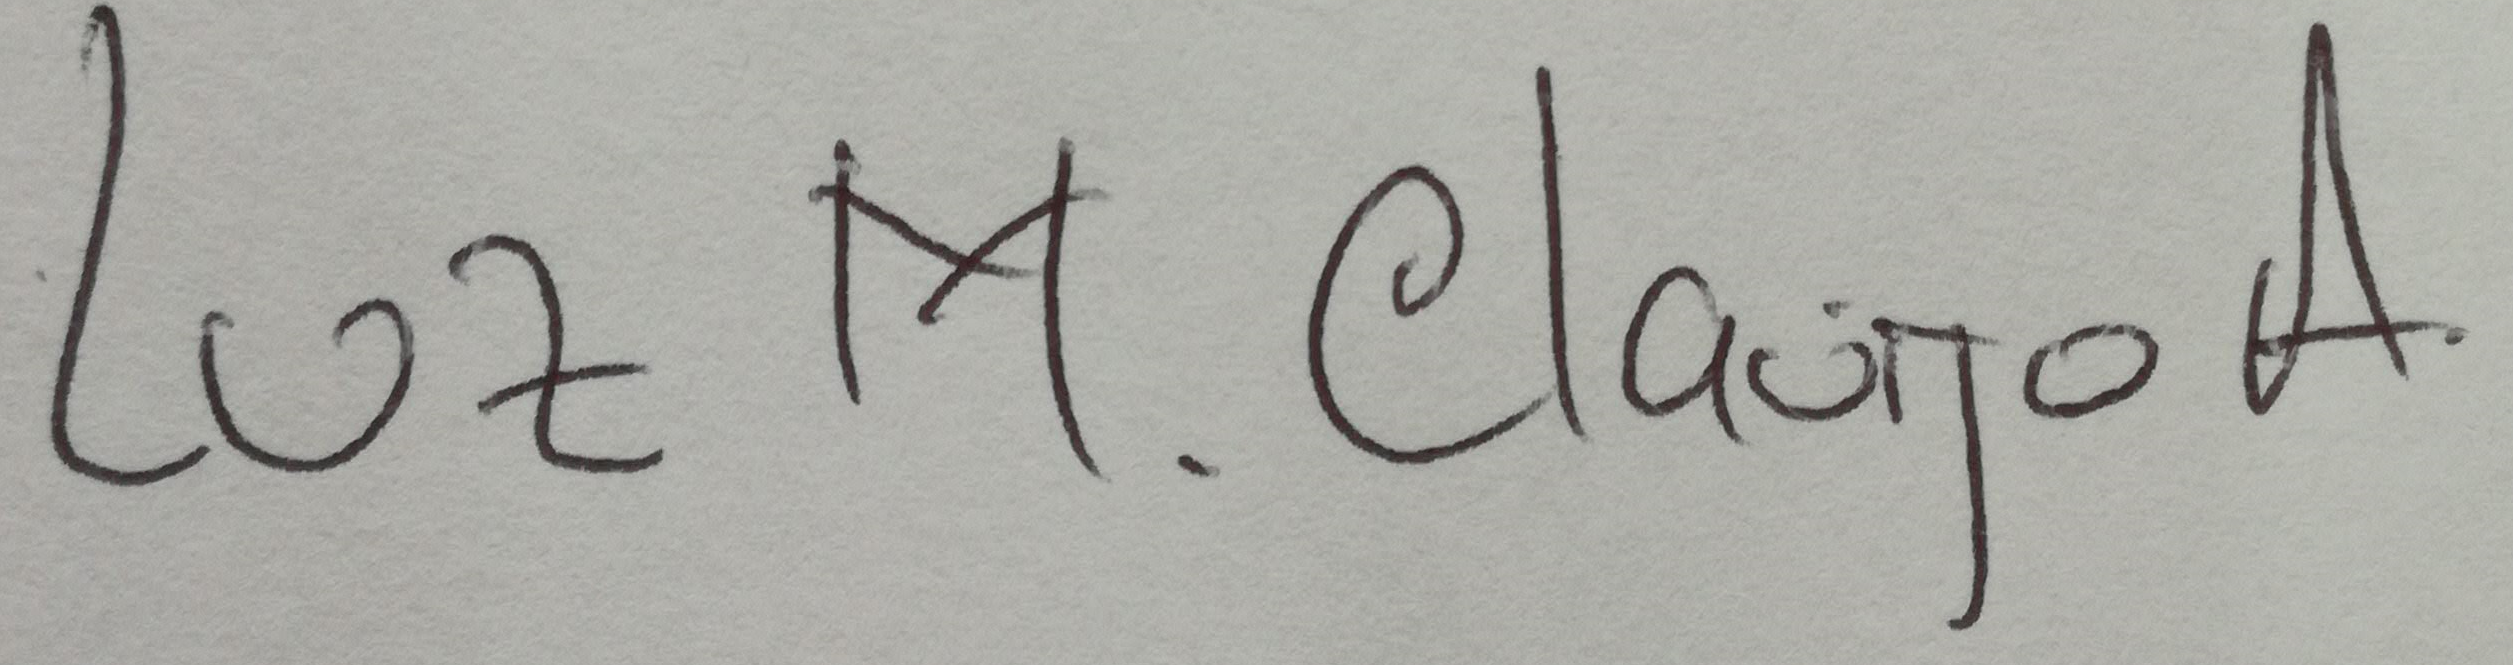 Luz M. Clavijo A.